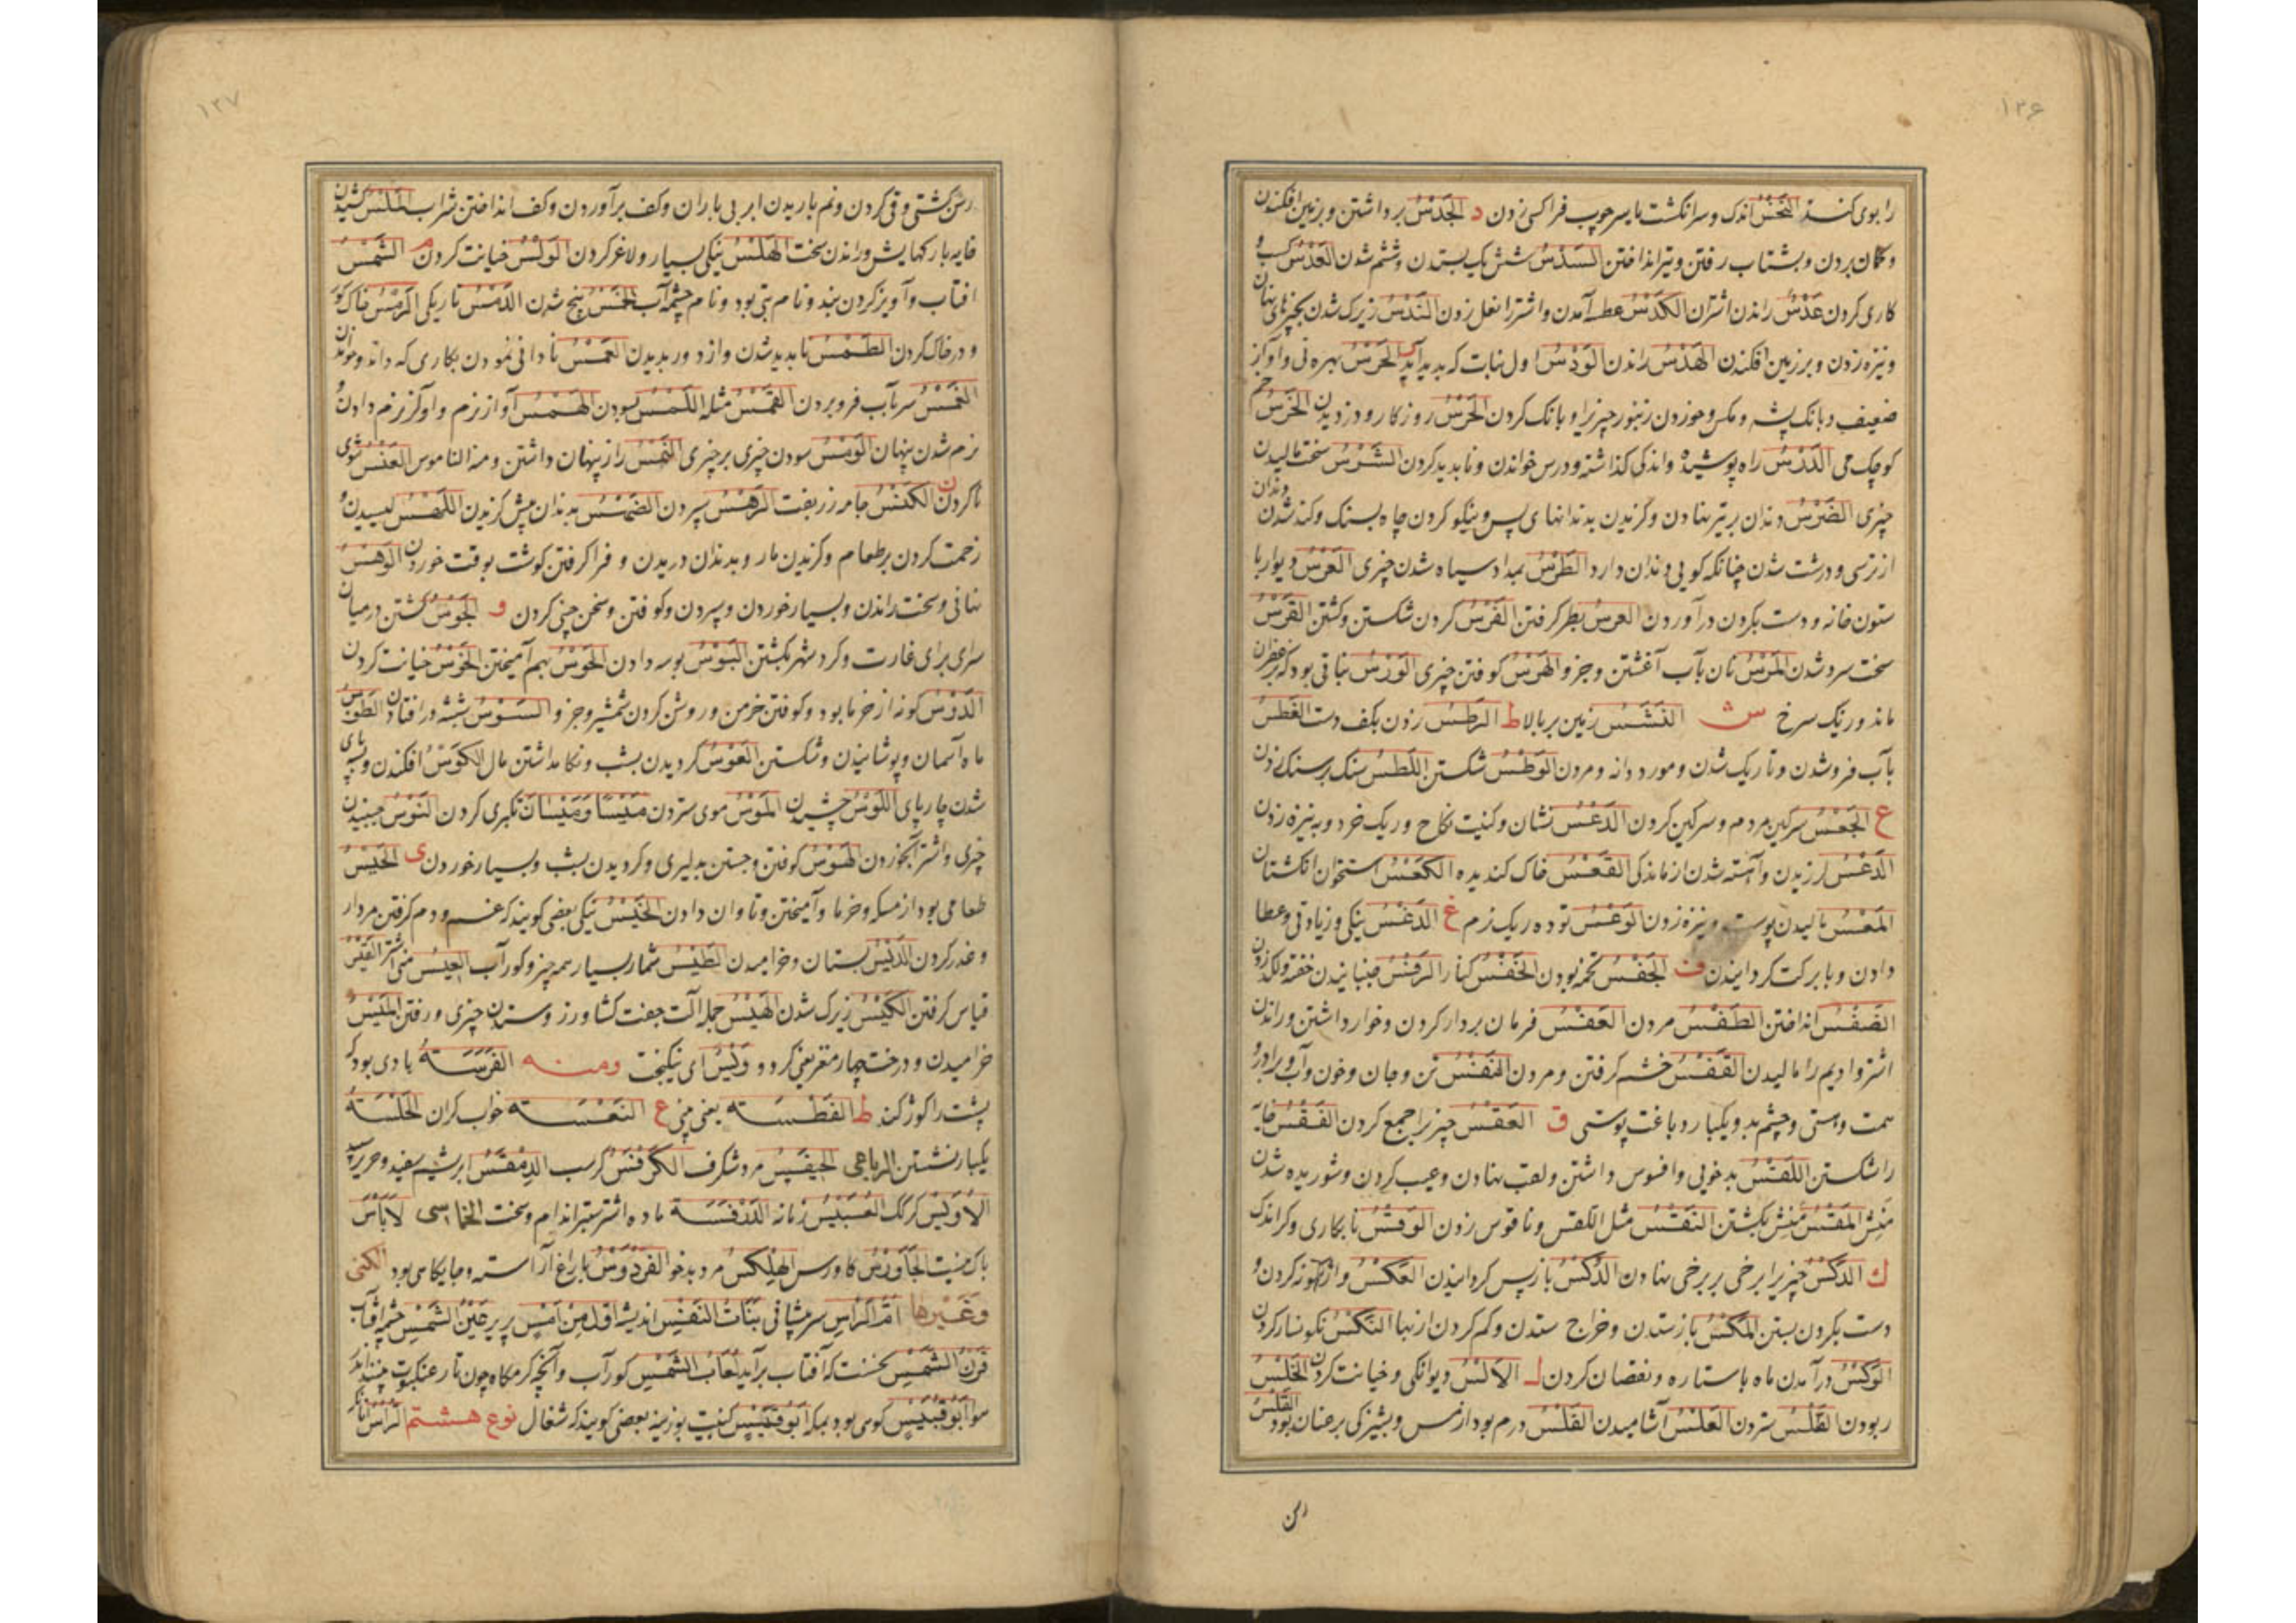 ۱۲۶
را بوی کند النَخْسُ اندک و سر انگشت یا سر چوب فرا کسی زدن د الجَدْسُ برداشتن و بر زمین افکندن
و گمان بردن و بشتاب رفتن و تیر انداختن السَدْسُ شش یک بستدن و ششم شدن العَدْسُ
کاری کردن عَدَسْ راندن استران الکَدْسُ عطسه آمدن و اشتر را نعل زدن النَدْسُ زیرک شدن بچیزهای نهان
و نیزه زدن و بر زمین افکندن الهَدْسُ راندن الوَدْسُ اول نبات که پدید آید الجَرْسُ بهره نی و آواز
ضعیف و بانک پشه و مکس و خوردن زنبور چیزیرا و بانک کردن الحَرْسُ روزکار و دزدیدن الخَرْسُ خم
کوچک می الدَرْسُ راه پوشیده و اندکی کذاشته و درس خواندن و ناپدید کردن الشَرْسُ سخت مالیدن
چیزی الضَرْسُ دندان بر تیر نهادن و کزیدن بدندانهای پسین و نیکو کردن چاه بسنک و کند شدن دندان
از ترسی و درشت شدن چنانکه کویی دندان دارد الطَرْسُ بمداد سیاه شدن چیزی العَرْسُ دیوار با
ستون خانه و دست بکردن در آوردن العرسُ بطر کرفتن الفَرْسُ کردن شکستن و کشتن القَرْسُ
سخت سرد شدن المَرْسُ نان بآب آغشتن و جز و الهَرْسُ کوفتن چیزی الوَرْسُ نباتی بود که بزعفران
ماند و رنک سرخ ش النَشْسُ زمین بر بالا ط الرَطْسُ زدن بکف دست الغَطْسُ
بآب فرو شدن و تاریک شدن و مورد دانه و مردن الوَطْسُ شکستن اللَطْسُ سنک بر سنک زدن
ع الجَعْسُ سرکین مردم و سرکین کردن الدَعْسُ نشان و کنیت نکاح و ریک خرد و به نیزه زدن
الدَعْسُ لرزیدن و آهسته شدن از ماندکی القَعْسُ خاک کندیده الکَعْسُ استخوان انکشتان
المَعْسُ مالیدن پوست و نیزه زدن الوَعْسُ توده ریک نرم غ الدَغْسُ نیکی و زیادتی و عطا
دادن و با برکت کردانیدن ف الجَفْسُ تخمه بودن الخَفْسُ الرَفْسُ جنبانیدن خفته و لکد زدن
الضَفْسُ انداختن الطَفْسُ مردن العَفْسُ فرمان بردار کردن و خوار داشتن و راندن
اشتر و ادیم را مالیدن القَفْسُ خشم کرفتن و مردن النَفْسُ تن و جان و خون و آب و برادر و
همت و هستی و چشم بد و یکبار دباغت پوستی ق العَقْسُ چیزیرا جمع کردن الفَقْسُ خایه
را شکستن اللَقْسُ بدخویی و افسوس داشتن و لقب نهادن و عیب کردن و شوریده شدن
مَنِش المَقْسُ مَنِش بکشتن النَقْسُ مثل اللقس و ناقوس زدن الوَقْسُ نابکاری و کر اندک
ك الدَکْسُ چیزیرا برخی بر برخی نهادن الرَکْسُ بازپس کردانیدن العَکْسُ واژکونه کردن و
دست بکردن بستن المَکْسُ باز ستدن و خراج ستدن و کم کردن از بها النَکْسُ نکونسار کردن
الوَکْسُ در آمدن ماه با ستاره و نقصان کردن ل الاَلْسُ دیوانکی و خیانت کردن الخَلْسُ
ربودن السَلْسُ ستردن العَلْسُ آشامیدن الفَلْسُ درم بود از مس و پشیزکی بر عنان بود القَلْسُ
رسن
۱۲۷
رسن کشتی و قی کردن و نم باریدن ابر بی باران و کف برآوردن و کف انداختن شراب المَلْسُ کشیدن
خایه با رکهایش و راندن سخت الهَلْسُ نیکی بسیار و لاغر کردن الوَلْسُ خیانت کردن م الشَمْسُ
آفتاب و آویز کردن بند و نام بتی بود و نام چشمه آب الخَمْسُ پنج شدن الدَمْسُ تاریکی الرَمْسُ خاک کور
و در خاک کردن الطَمْسُ ناپدید شدن و از دور بدیدن العَمْسُ نادانی نمودن بکاری که داند
الغَمْسُ سر بآب فرو بردن القَمْسُ مثله اللَمْسُ بسودن الهَمْسُ آواز نرم و آواز نرم دادن و
نرم شدن پنهان الوَمْسُ سودن چیزی بر چیزی النَمْسُ راز پنهان داشتن و منه الناموس العَنْسُ شوی
ناکردن ن الکَنْسُ جامه زربفت الرَهْسُ سپردن الضَهْسُ بدندان پیش کزیدن اللَهْسُ لیسیدن و
زحمت کردن بر طعام و کزیدن مار و بدندان دریدن و فرا کرفتن کوشت بوقت خوردن الوَهْسُ
نهانی و سخت راندن و بسیار خوردن و سپردن و کوفتن و سخن چینی کردن و الجَوْسُ کشتن در میان
سرای برای غارت و کرد شهر بکشتن البَوْسُ بوسه دادن الحَوْسُ بهم آمیختن الخَوْسُ خیانت کردن
الدَوْسُ کونه از خرما بود و کوفتن خرمن و روشن کردن شمشیر و جز و السَوْسُ شپشه در افتادن الطَوْسُ
ماه آسمان و پوشانیدن و شکستن العَوْسُ کردیدن بشب و نکاه داشتن مال الکَوْسُ افکندن و بسه پای
شدن چارپای اللَوْسُ چشیدن المَوْسُ موی ستردن مَیْسًا وَمَیْسَانً تکبری کردن النَوْسُ جنبیدن
چیزی و اشتر را بخوردن الهَوْسُ کوفتن و جستن بدلیری و کردیدن بشب و بسیار خوردن ی الحَیْسُ
طعامی بود از مسکه و خرما و آمیختن و تاوان دادن الخَیْسُ نیکی بعضی کویند که غم و دم کرفتن مردار
و غدر کردن الدَیْسُ بستان و خرامیدن الطَیْسُ شمار بسیار همه چیز و کور آب العَیْسُ منی اشتر القَیْسُ
قیاس کرفتن الکَیْسُ زیرک شدن الهَیْسُ جمله آلت جفت کشاورز و ستدن چیزی و رفتن المَیْسُ
خرامیدن و درخت چارمغز یعنی کردو وَیْسَ ای نیکبخت ومنه الفَرْسَةُ بادی بود که
پشت را کوژ کند ط الفَطْسَة یعنی بینی ع النَعْسَة خواب کران الجَلْسَةُ
یکبار نشستن الرباعی الجِیفَیسُ مرد شکرف الکَرَفْسُ کرسب الدِمَقْسُ ابریشم سفید و حریر سپید
الاُوَیْسُ کرک العُبَیْسُ زمانه الدِرَفْسَة ماده اشتر ستبر اندام و سخت الخماسی لاَبَاْسَ
باک نیست الجَاوَرْسُ کاورس الهِلِکْسُ مرد بدخو الفِرْدَوْسُ باغ آراسته و جایکاهی بود الکنی
وغَیْرها اُمّ الرَاسِ سر مثانی بَنَاتُ النَفْسِ اندیشه اَوَّلَ مِنْ اَمْسِ پریر عَیْنُ الشَمْسِ چشمه آفتاب
قَرْنُ الشَمْسِ نخست که آفتاب برآید لُعَابُ الشَمْسِ کور آب و آنچه کرمکاه چون تار عنکبوت بینند اندر
هوا اَبُو قُبَیْسٍ کوهی بود بمکه اَبُو قُبَیْسٍ کنیت بوزینه بعضی کویند که شغال نوع هشتم